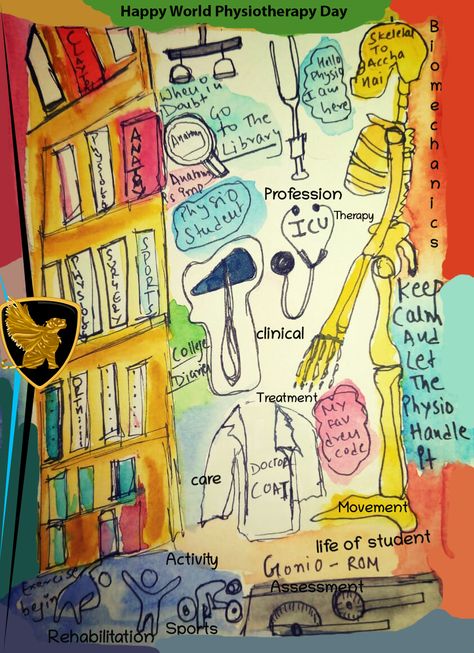 Happy World Physiotherapy Day
Skeletal
To
Accha
hai
Biomechanics
Hello
Physio
I am
here
When in
Doubt
Go
to The
Library
ANATOMY
Anatomy
Anatomy
is imp
Profession
Physio
Student
Therapy
ICU
SPORTS
Keep
Calm
And
Let
The
Physio
Handle
Pt
clinical
College
Treatment
My
Fav
dress
code
DOCTOR
COAT
care
Movement
life of student
Activity
Gonio-ROM
Exercise
begin
Assessment
Rehabilitation
Sports